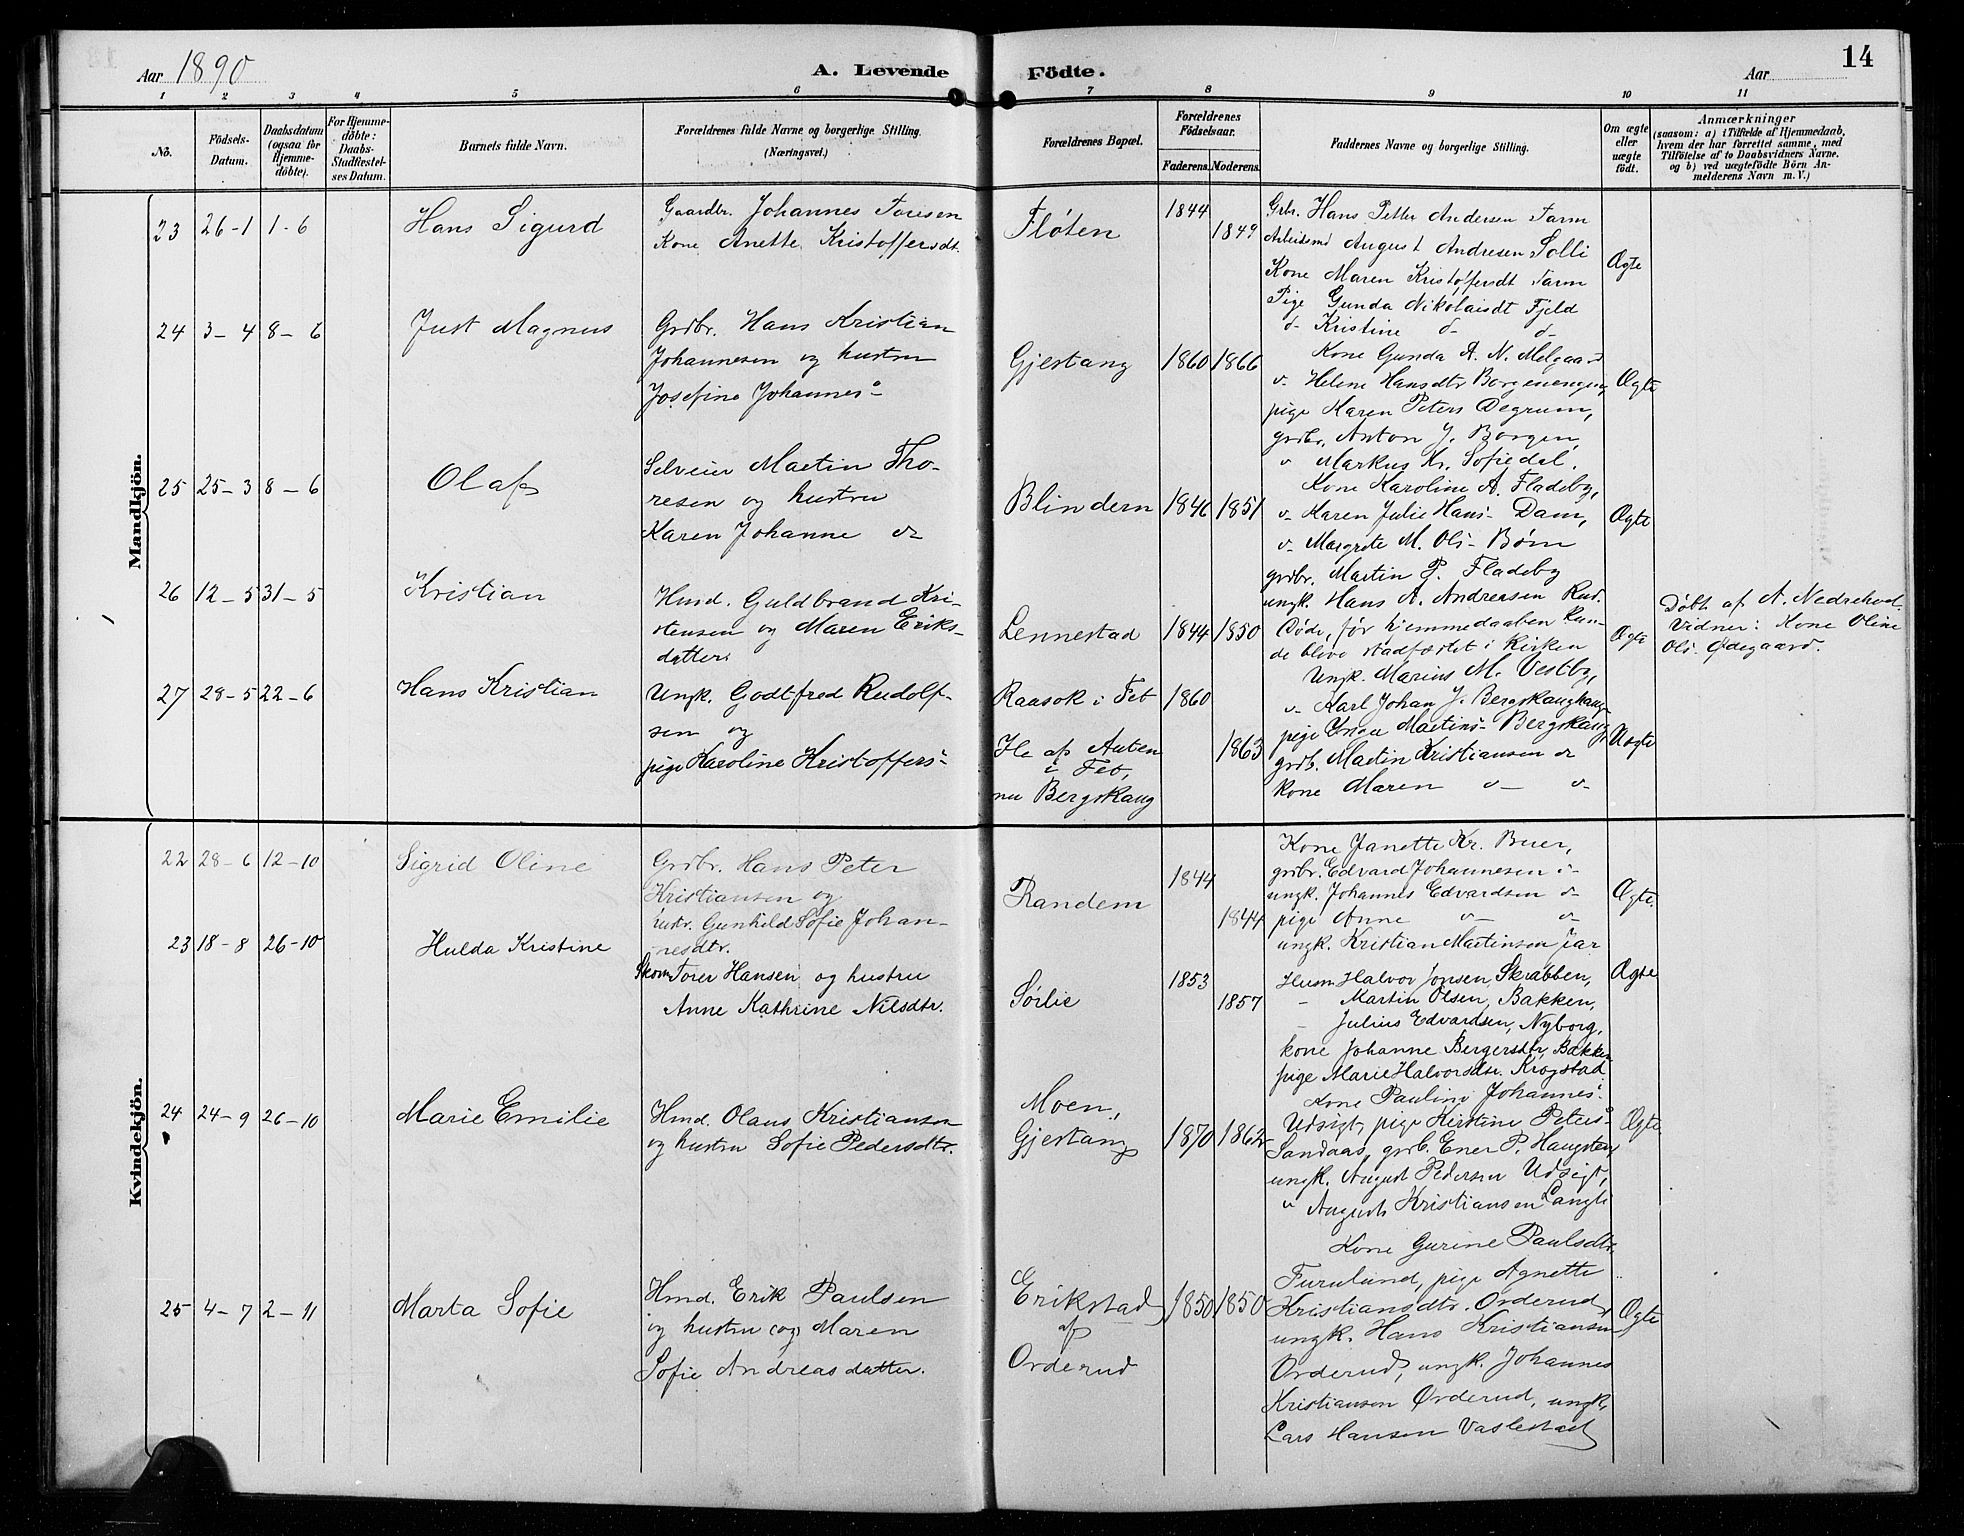 14
Aar 1890
A. Levende Födte.
Aar
1 2 3 4 5 6 7 8 9 10 11
No.
Födsels-Datum.
Daabsdatum (ogsaa for Hjemme-döbte).
For Hjemme-döbte: Daabs-Stadfæstel-ses Datum.
Barnets fulde Navn.
Forældrenes fulde Navne og borgerlige Stilling. (Næringsvei.)
Forældrenes Bopæl.
Forældrenes Födselsaar.
Faderens. Moderens.
Faddernes Navne og borgerlige Stilling.
Om ægte eller uægte födt.
Anmærkninger
(saasom: a) i Tilfælde af Hjemmedaab,
hvem der har forrettet samme, med
Tilföielse af to Daabsvidners Navne.
og b) ved uægtefödte Börn An-
melderens Navn m. V.)
Mandkjön.
23 26-1 1-6
Hans Sigurd
Gaardbr. Johannes Toresen
Kone Anette Kristoffersdt.
Fløten
1844
1849
Grbr. Hans Petter Andersen Tarm
Arbeidsmd August Andresen Solli
Kone Maren Kristoffersdt Tarm
Pige Gunda Nikolaisdt Fjeld
d- Kristine d- d-
Ægte
24 3-4 8-6
Just Magnus
Grdbr. Hans Kristian
Johannesen og hustru
Josefine Johannes-
Gjestang
1860 1866
Kone Gunda A. N. Melgaard
v- Helene Hansdtr Borgenengen,
pige Karen Peters Degrum,
grdbr. Anton J. Borgen,
v Markus Kr. Sofiedal.
Ægte
25 25-3 8-6
Olaf
Selveier Martin Tho-
resen og hustru
Karen Johanne
Blindern
1846 1851
Kone Karoline A. Fladeby,
v- Karen Julie Hans- Dam,
v- Margrete M. Ols- Børn
grdbr. Martin P. Fladeby
ungk. Hans A. Andresen Rud.
Ægte
26 12-5 31-5
Kristian
Hmd. Guldbrand Kri-
stensen og Maren Eriks-
datter.
Lennestad
1844 1850
Døde, før hjemmedaaben kun-
de blive stadfæstet i kirken
Ægte
Døbt af A. Nedrehod.
Vidner: Kone Oline
Ols. Ødegaard.
27 28-5 22-6
Hans Kristian
Ungk. Godtfred Rudolf-
sen og
pige Karoline Kristoffers-
Raasok i Fet
af Auten
i Fet,
nu Bergskaug
1860
1863
Ungk. Marius M. Vestby,
v- Karl Johan J. Bergskaug
pige Inga Martins- Bergskaug
grdb. Martin Kristiansen
kone Maren v- v-
Uægte
Kvindekjön.
22 28-6 12-10
Sigrid Oline
Grdbr. Hans Peter
Kristiansen og
hustr. Gunhild Sofie Johan-
nesdtr.
Randem
1844
1844
Kone Janette Kr. Buer,
grdbr. Edvard Johannesen
ungk. Johannes Edvardsen
pige Anne v- v-
ungk. Kristian Martinsen Jar
Ægte.
23 18-8 26-10
Hulda Kristine
Skom Torer Hansen og hustru
Anne Kathrine Nilsdtr.
Sørlie
1853
1857
Husm Halvor Jonsen, Skrabben,
- Martin Olsen, Bakken,
- Julius Edvardsen, Nyborg,
kone Johanne Bergersdtr, Bakken
pige Marie Halvorsdtr. Krogstad
Ægte
24 24-9 26-10
Marie Emilie
Hmd. Olaus Kristiansen
og hustru Sofie Pedersdtr.
Moen,
Gjestang
1870 1862
Kone Pauline Johannes-
Udsigt, pige Kristine Peters-
Sandaas, grdb. Ener P. Haugsten
ungk. August Pedersen Udsigt,
v August Kristiansen Langli
Ægte.
25 4-7 2-11
Marta Sofie
Hmd. Erik Paulsen
og hustru (og) Maren
Sofie Andreasdatter.
Erikstad
af
Orderud
1850 1850
Kone Gurine Paulsdtr.
Furulund, pige Agnette
Kristiansdtr. Orderud
ungk. Hans Kristiansen
Orderud, ungk. Johannes
Kristiansen Orderud, ungk.
Lars Hansen Vaslestad
Ægte